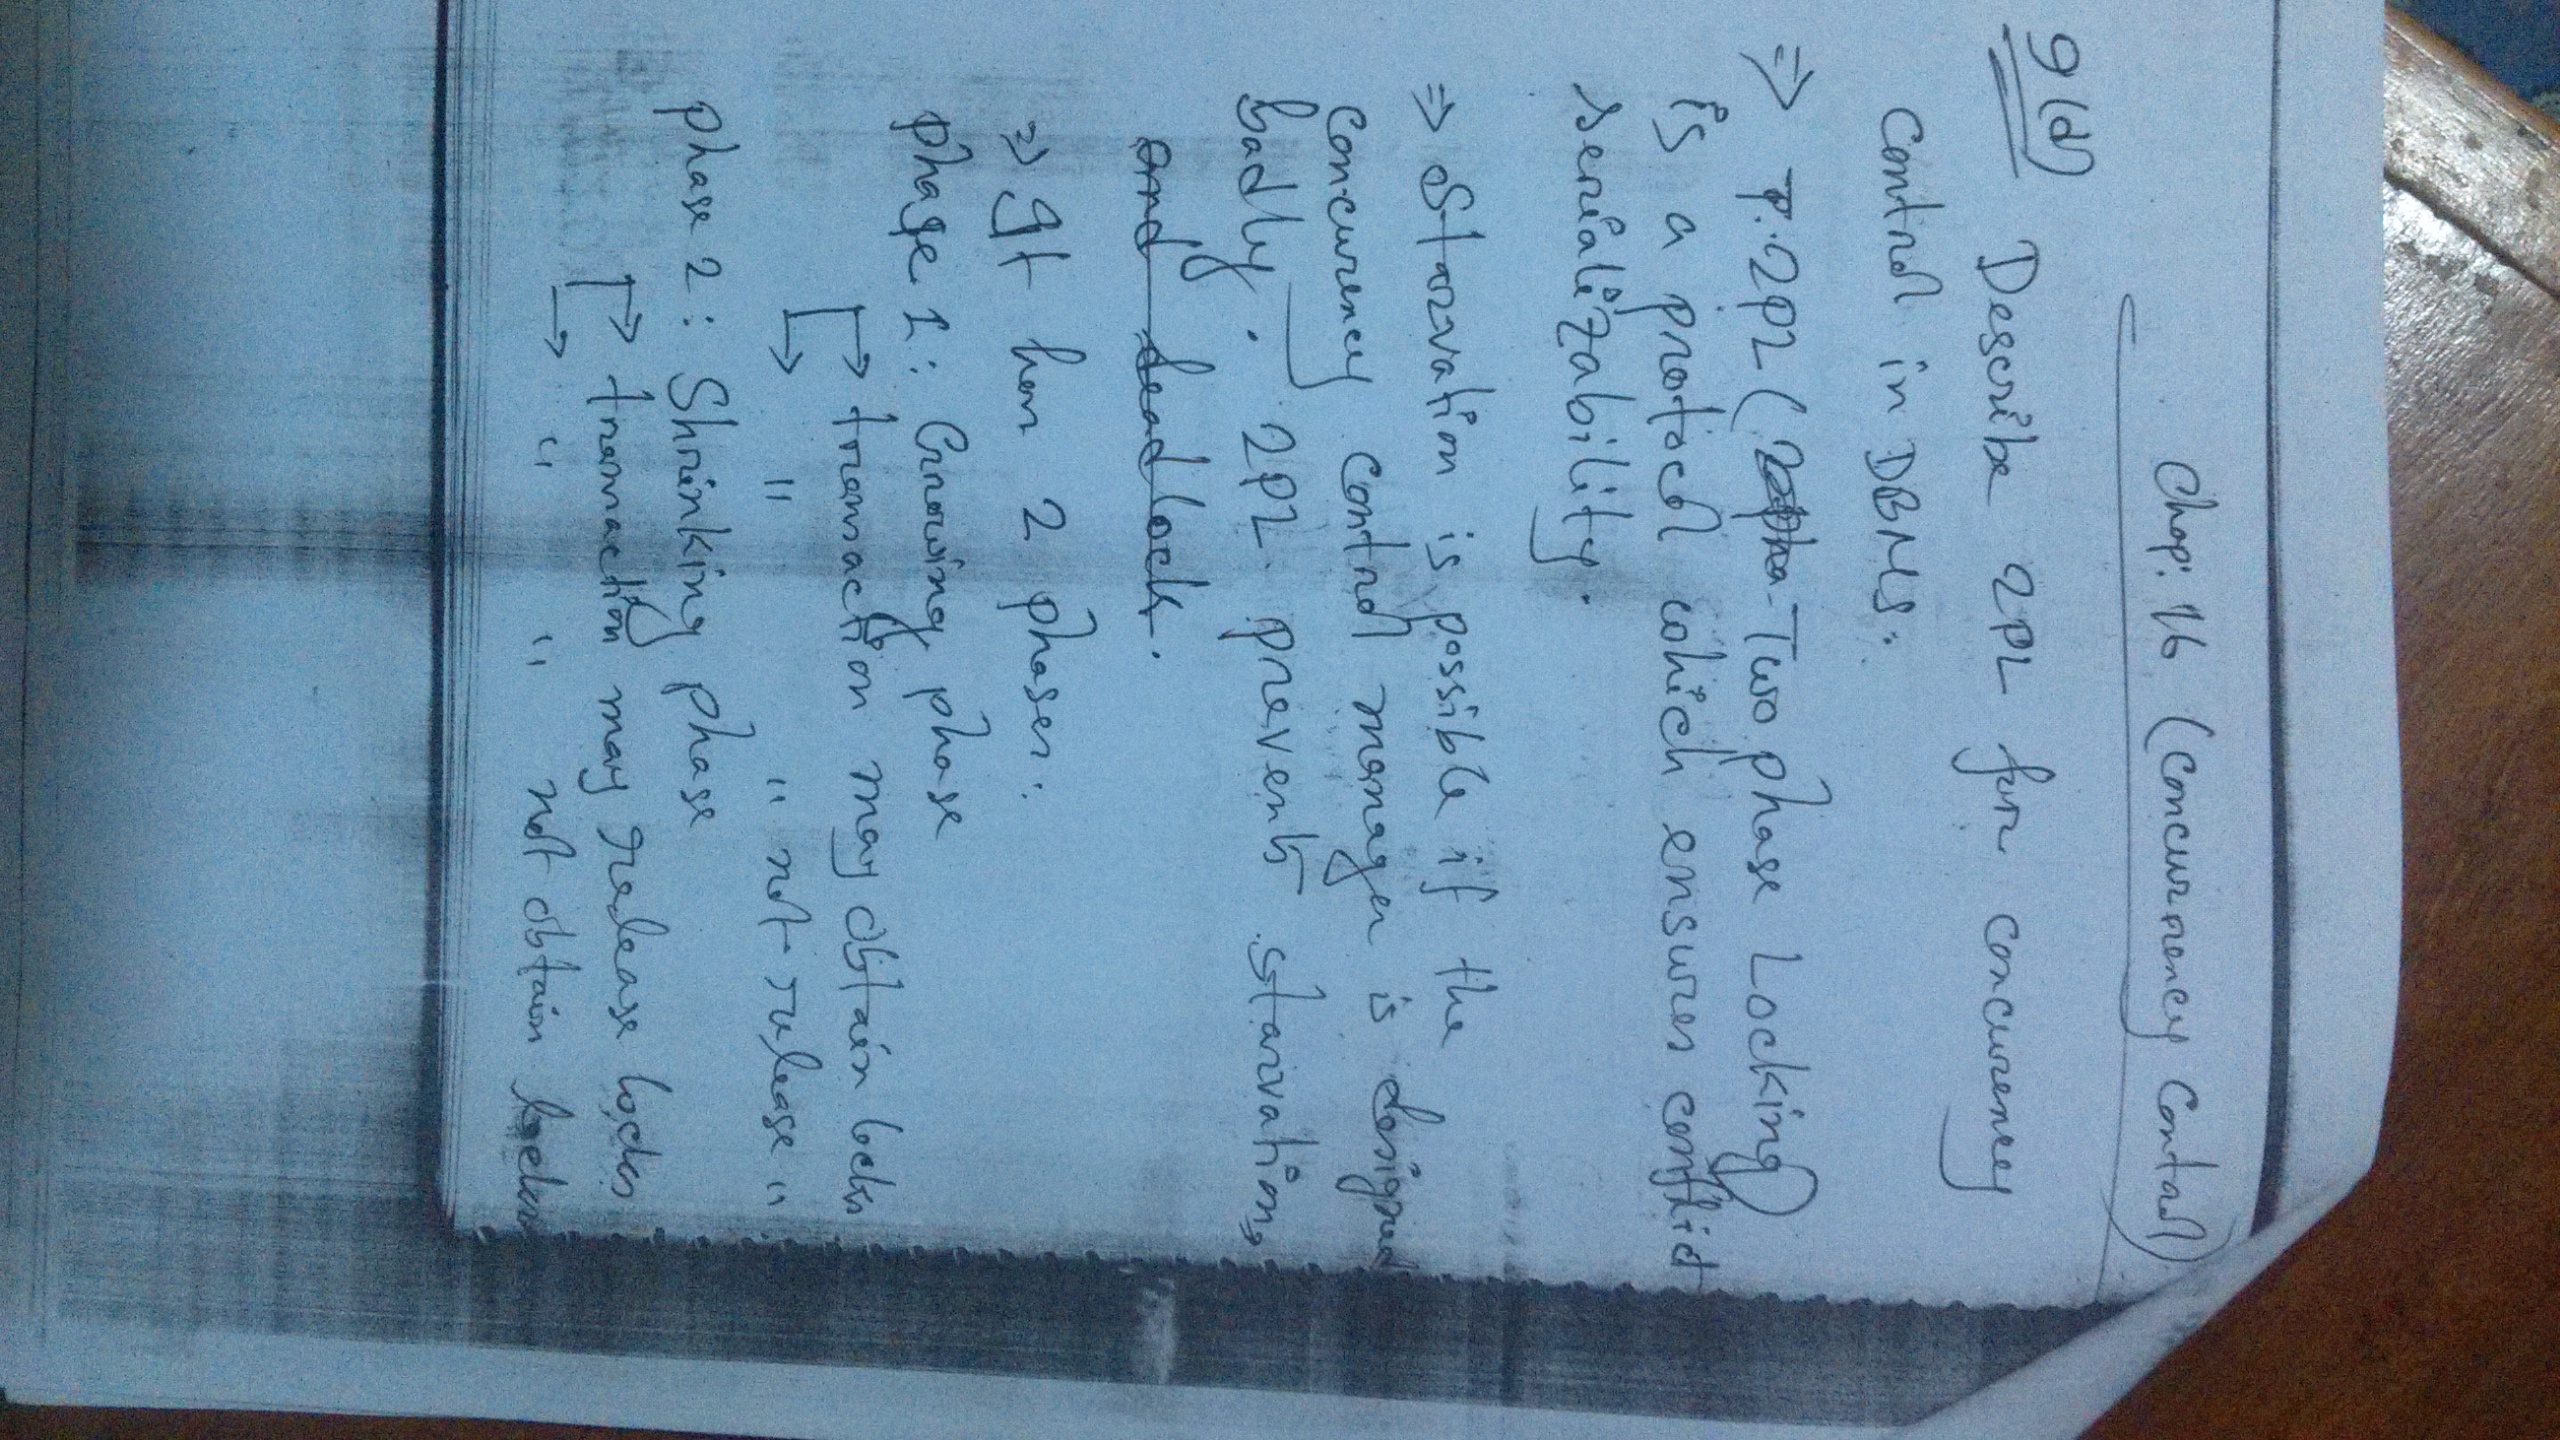 Chap: 16 (Concurrency Control)
9(d) Describe 2PL for concurrency
Control in DBMS.
⇒ 2PL (Two phase Locking)
is a protocol which ensures conflict
serializability.
⇒ Starvation is possible if the
concurrency control manager is designed
badly. 2PL prevents starvation
and deadlock.
⇒ It has 2 phases:
Phase 1: Growing phase
↳ transaction may obtain locks
↳ " " not release "
Phase 2: Shrinking phase
↳ transaction may release locks
↳ " " not obtain locks